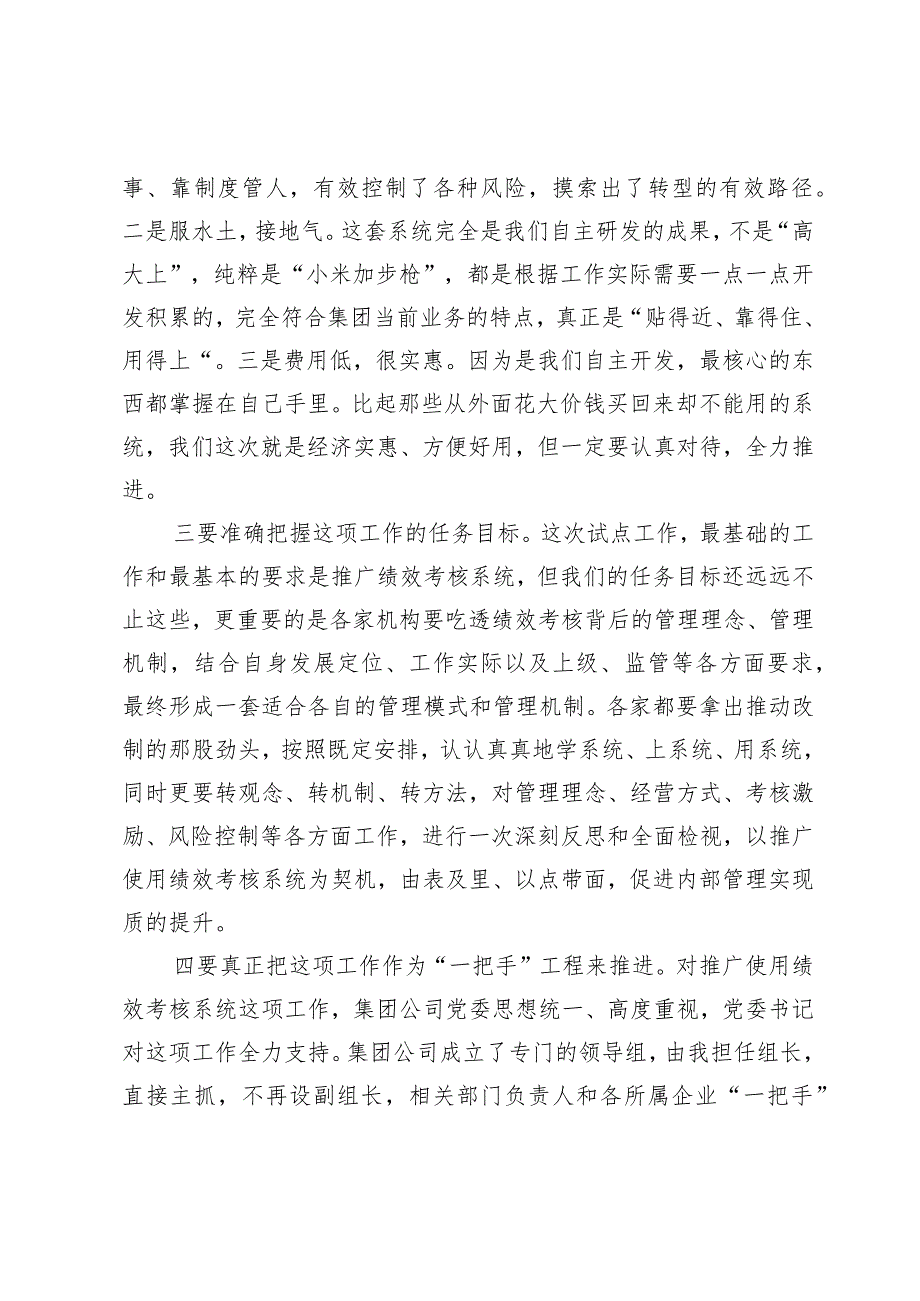 事、靠制度管人，有效控制了各种风险，摸索出了转型的有效路径。
二是服水土，接地气。这套系统完全是我们自主研发的成果，不是“高
大上”，纯粹是“小米加步枪”，都是根据工作实际需要一点一点开
发积累的，完全符合集团当前业务的特点，真正是“贴得近、靠得住、
用得上“。三是费用低，很实惠。因为是我们自主开发，最核心的东
西都掌握在自己手里。比起那些从外面花大价钱买回来却不能用的系
统，我们这次就是经济实惠、方便好用，但一定要认真对待，全力推
进。
三要准确把握这项工作的任务目标。这次试点工作，最基础的工
作和最基本的要求是推广绩效考核系统，但我们的任务目标还远远不
止这些，更重要的是各家机构要吃透绩效考核背后的管理理念、管理
机制，结合自身发展定位、工作实际以及上级、监管等各方面要求，
最终形成一套适合各自的管理模式和管理机制。各家都要拿出推动改
制的那股劲头，按照既定安排，认认真真地学系统、上系统、用系统，
同时更要转观念、转机制、转方法，对管理理念、经营方式、考核激
励、风险控制等各方面工作，进行一次深刻反思和全面检视，以推广
使用绩效考核系统为契机，由表及里、以点带面，促进内部管理实现
质的提升。
四要真正把这项工作作为“一把手”工程来推进。对推广使用绩
效考核系统这项工作，集团公司党委思想统一、高度重视，党委书记
对这项工作全力支持。集团公司成立了专门的领导组，由我担任组长，
直接主抓，不再设副组长，相关部门负责人和各所属企业“一把手”